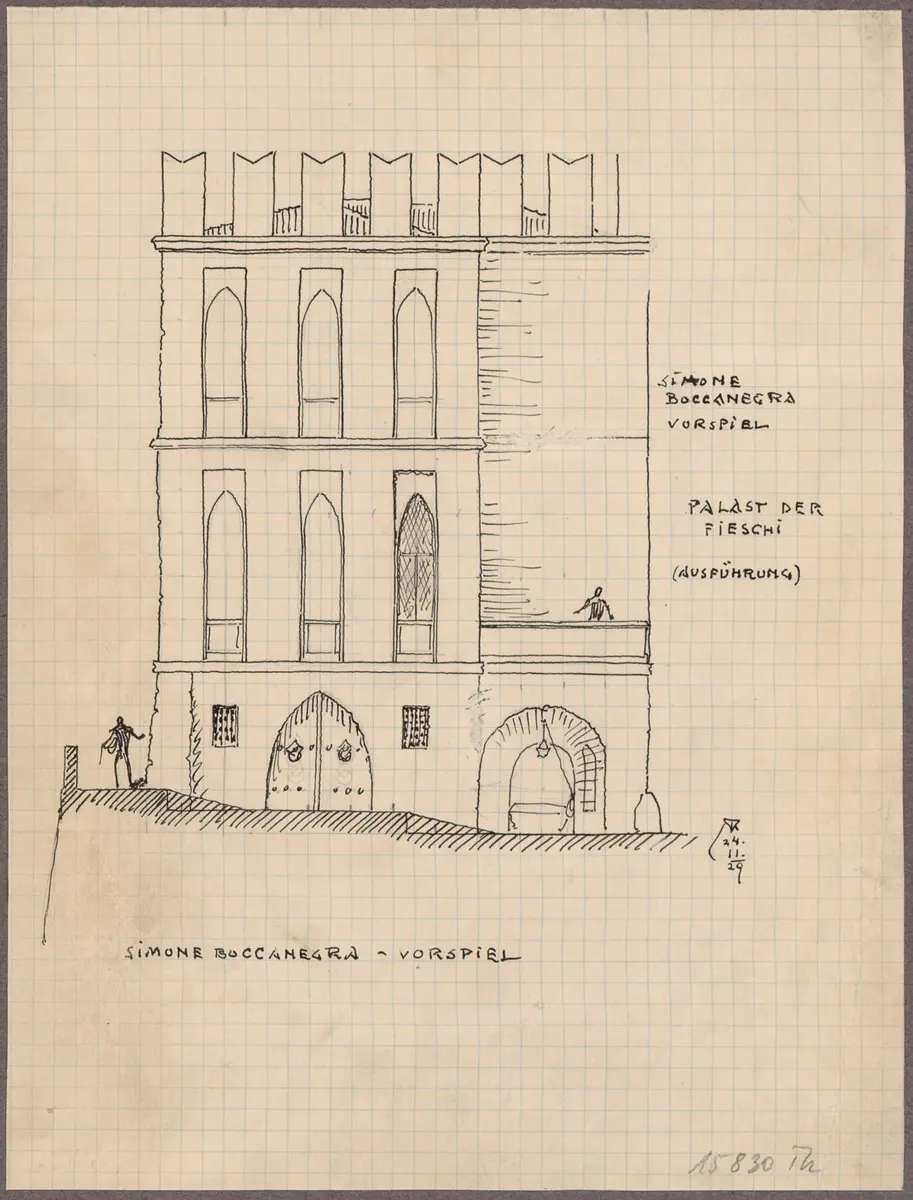 SIMONE
BOCCANEGRA
VORSPIEL
PALAST DER
FIESCHI
(AUSFÜHRUNG)
24.
11.
29
SIMONE BOCCANEGRA - VORSPIEL
15830 Th